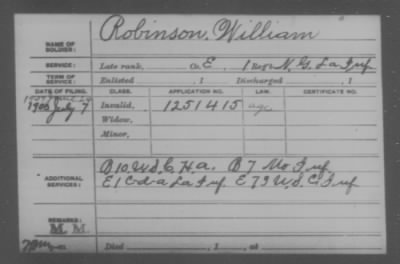 NAME OF SOLDIER: Robinson, William
SERVICE: Late rank, Co. E, 1 Reg't N. G. La Inf
TERM OF SERVICE: Enlisted , 1 Discharged , 1
DATE OF FILING. CLASS. APPLICATION NO. LAW. CERTIFICATE NO.
1900 July 7 Invalid, 1251415 age
Widow,
Minor,
ADDITIONAL SERVICES: B 10, U.S.C.H.A. B 7 Mo Inf
E 1 C-d-a La Inf. E 73 U.S.C. Inf
REMARKS: M. M.
Died , 1 , at